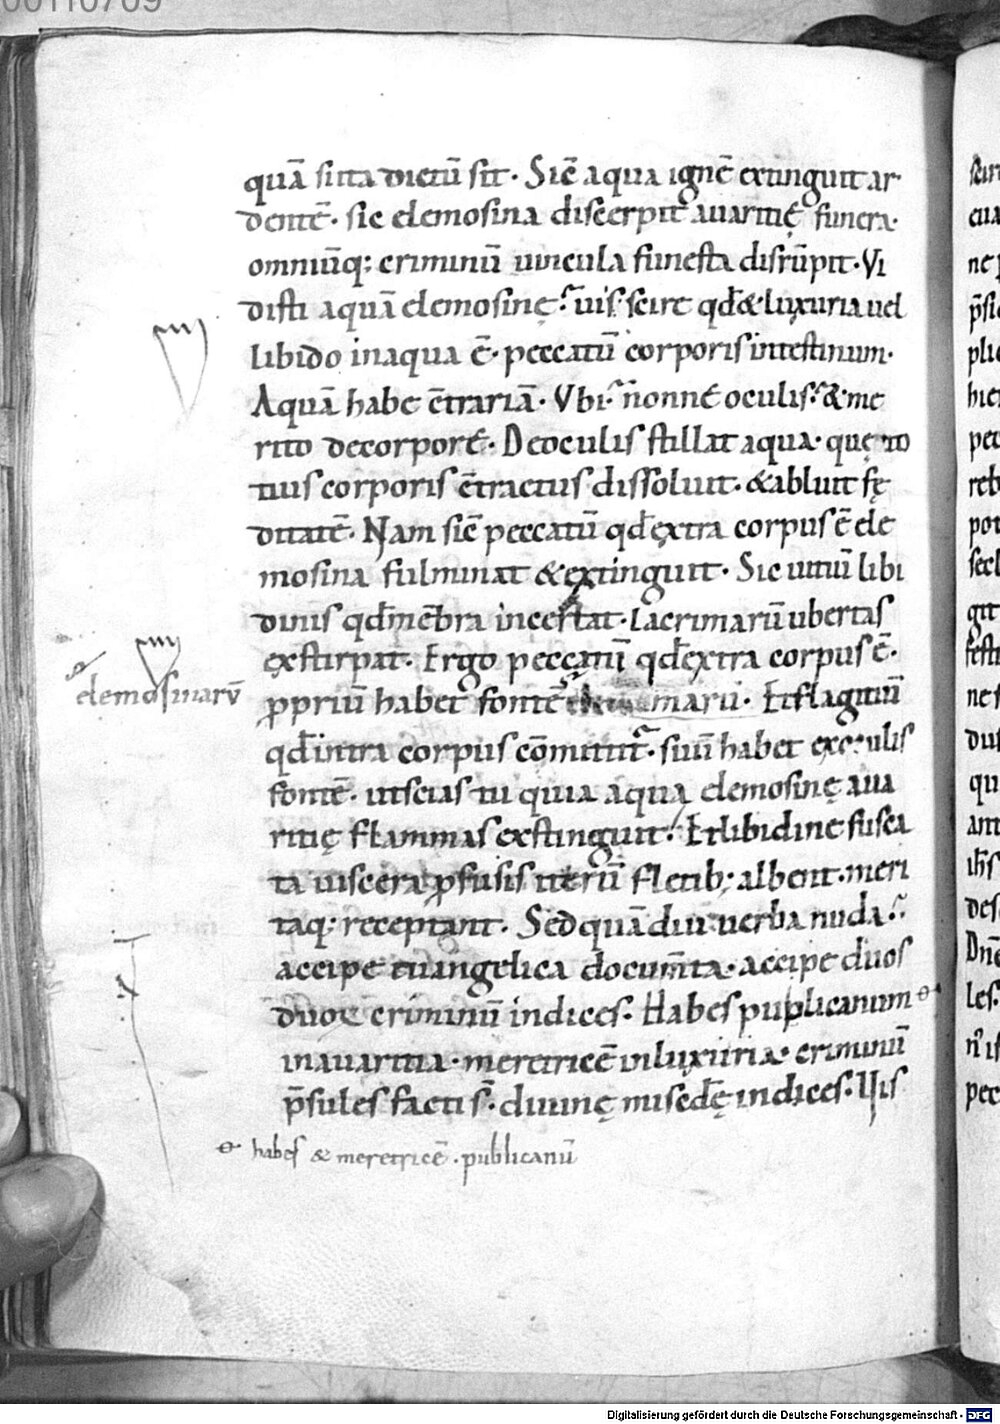 00110709
quā sit ita dictū sit · Sic̄ aqua ignē extinguit ar
dentē · sic elemosina discerpit auaritię funera ·
omniūq; criminū uincula funesta disrūpit · Vi
disti aquā elemosinę · uis scire qđ & luxuria uel
libido in aqua ē · peccatū corporis intestinum ·
Aquā habe c̄trariā · Vbi · n̄onne oculis · & me
rito de corpore · De oculis stillat aqua · quę to
tius corporis c̄tractus dissoluit · & abluit fę
ditatē · Nam sic̄ peccatū qđ extra corpus ē ele
mosina fulminat & extinguit · Sic uitiū libi
dinis qđ mēbra incestat · Lacrimarū ubertas
exstirpat · Ergo peccatū qđ extra corpus ē ·
elemosinarū
ꝓpriū habet fontē marū · Et flagitiū
qđ intra corpus cōmittit · suū habet ex oculis
fontē · ut scias tu quia aqua elemosinę aua
ritię flammas exstinguit · Et libidine fusca
ta uiscera ꝓfusis iterū fletib; albent · meri
taq; receptant · Sed quā diu uerba nuda ·
accipe euangelica docum̄ta · accipe duos
duoꝝ criminū indices · Habes puplicanum
in auaritia · meretricē in luxuria · criminū
p̄sules facti s̄ · diuinę misedę indices · His
habes & meretricē · publicanū
Digitalisierung gefördert durch die Deutsche Forschungsgemeinschaft - DFG